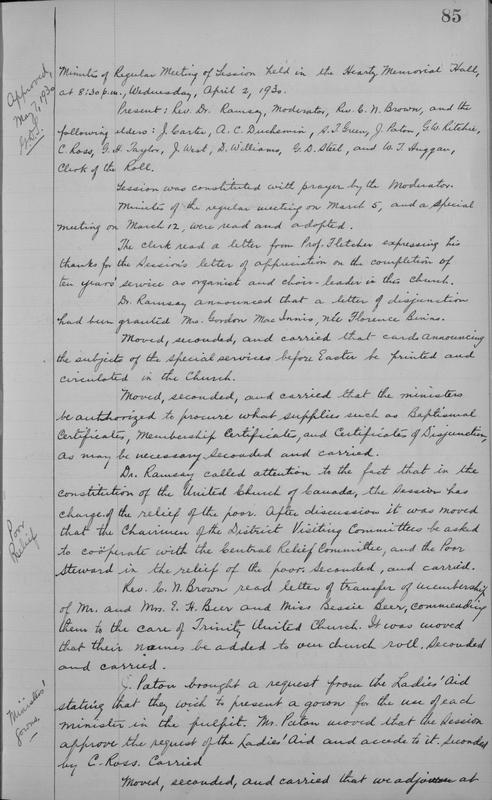 85
Approved,
May 7, 1930
Minutes of Regular Meeting of Session held in the Heartz Memorial Hall,
at 8:30 p.m., Wednesday, April 2, 1930.
Present: Rev. Dr. Ramsay, Moderator, Rev. C. N. Brown, and the
following elders: J. Carter, A. C. Duchemin, S. T. Green, J. Paton, G. W. Ritchie,
C. Ross, G. H. Taylor, J. West, D. Williams, G. D. Steel, and W. T. Huggan,
Clerk of the Roll.
Session was constituted with prayer by the Moderator.
Minutes of the regular meeting on March 5, and a special
meeting on March 12, were read and adopted.
The clerk read a letter from Prof. Fletcher expressing his
thanks for the Session's letter of appreciation on the completion of
ten years' service as organist and choir-leader in this Church.
Dr. Ramsay announced that a letter of disjunction
had been granted Mrs. Gordon Mac Innis, nee Florence Binns.
Moved, seconded, and carried that cards announcing
the subjects of the special services before Easter be printed and
circulated in the Church.
Moved, seconded, and carried that the ministers
be authorized to procure what supplies such as Baptismal
Certificates, Membership Certificates, and Certificates of Disjunction,
as may be necessary. Seconded and carried.
Dr. Ramsay called attention to the fact that in the
constitution of the United Church of Canada, the Session has
charge of the relief of the poor. After discussion it was moved
Poor
Relief
that the Chairmen of the District Visiting Committees be asked
to coöperate with the Central Relief Committee, and the Poor
Steward in the relief of the poor. Seconded, and carried.
Rev. C. N. Brown read letter of transfer of membership
of Mr. and Mrs. E. H. Beer and Miss Bessie Beer, commending
them to the care of Trinity United Church. It was moved
that their names be added to our church roll. Seconded
and carried.
Ministers'
gowns
J. Paton brought a request from the Ladies' Aid
stating that they wish to present a gown for the use of each
minister in the pulpit. Mr. Paton moved that the Session
approve the request of the Ladies' Aid and accede to it. Seconded
by C. Ross. Carried
Moved, seconded, and carried that we adjourn at